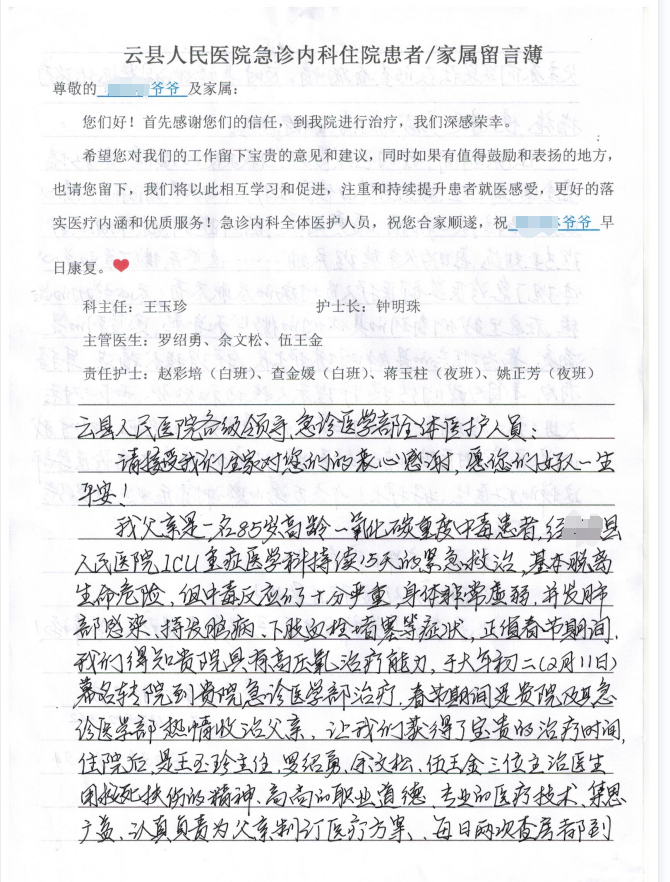 云县人民医院急诊内科住院患者/家属留言薄
尊敬的 爷爷 及家属：
您们好！首先感谢您们的信任，到我院进行治疗，我们深感荣幸。
希望您对我们的工作留下宝贵的意见和建议，同时如果有值得鼓励和表扬的地方，
也请您留下，我们将以此相互学习和促进，注重和持续提升患者就医感受，更好的落
实医疗内涵和优质服务！急诊内科全体医护人员，祝您合家顺遂，祝 爷爷 早
日康复。❤
科主任：王玉珍 护士长：钟明珠
主管医生：罗绍勇、余文松、伍王金
责任护士：赵彩培（白班）、查金媛（白班）、蒋玉柱（夜班）、姚正芳（夜班）
云县人民医院各级领导、急诊医学部全体医护人员：
请接受我们全家对您们的衷心感谢，愿您们好人一生
平安！
我父亲是一名85岁高龄一氧化碳重度中毒患者，经 县
人民医院ICU重症医学科持续15天的紧急救治，基本脱离
生命危险，但中毒反应仍十分严重，身体非常虚弱，并发肺
部感染、持发脑病、下肢血栓堵塞等症状，正值春节期间，
我们得知贵院具有高压氧治疗能力，于大年初二（2月11日）
慕名转院到贵院急诊医学部治疗，春节期间是贵院及其急
诊医学部热情收治父亲，让我们获得了宝贵的治疗时间，
住院后，是王玉珍主任，罗绍勇、余文松、伍王金三位主治医生
用救死扶伤的精神、高尚的职业道德、专业的医疗技术、集思
广益、认真负责为父亲制订医疗方案、每日两次查房都到